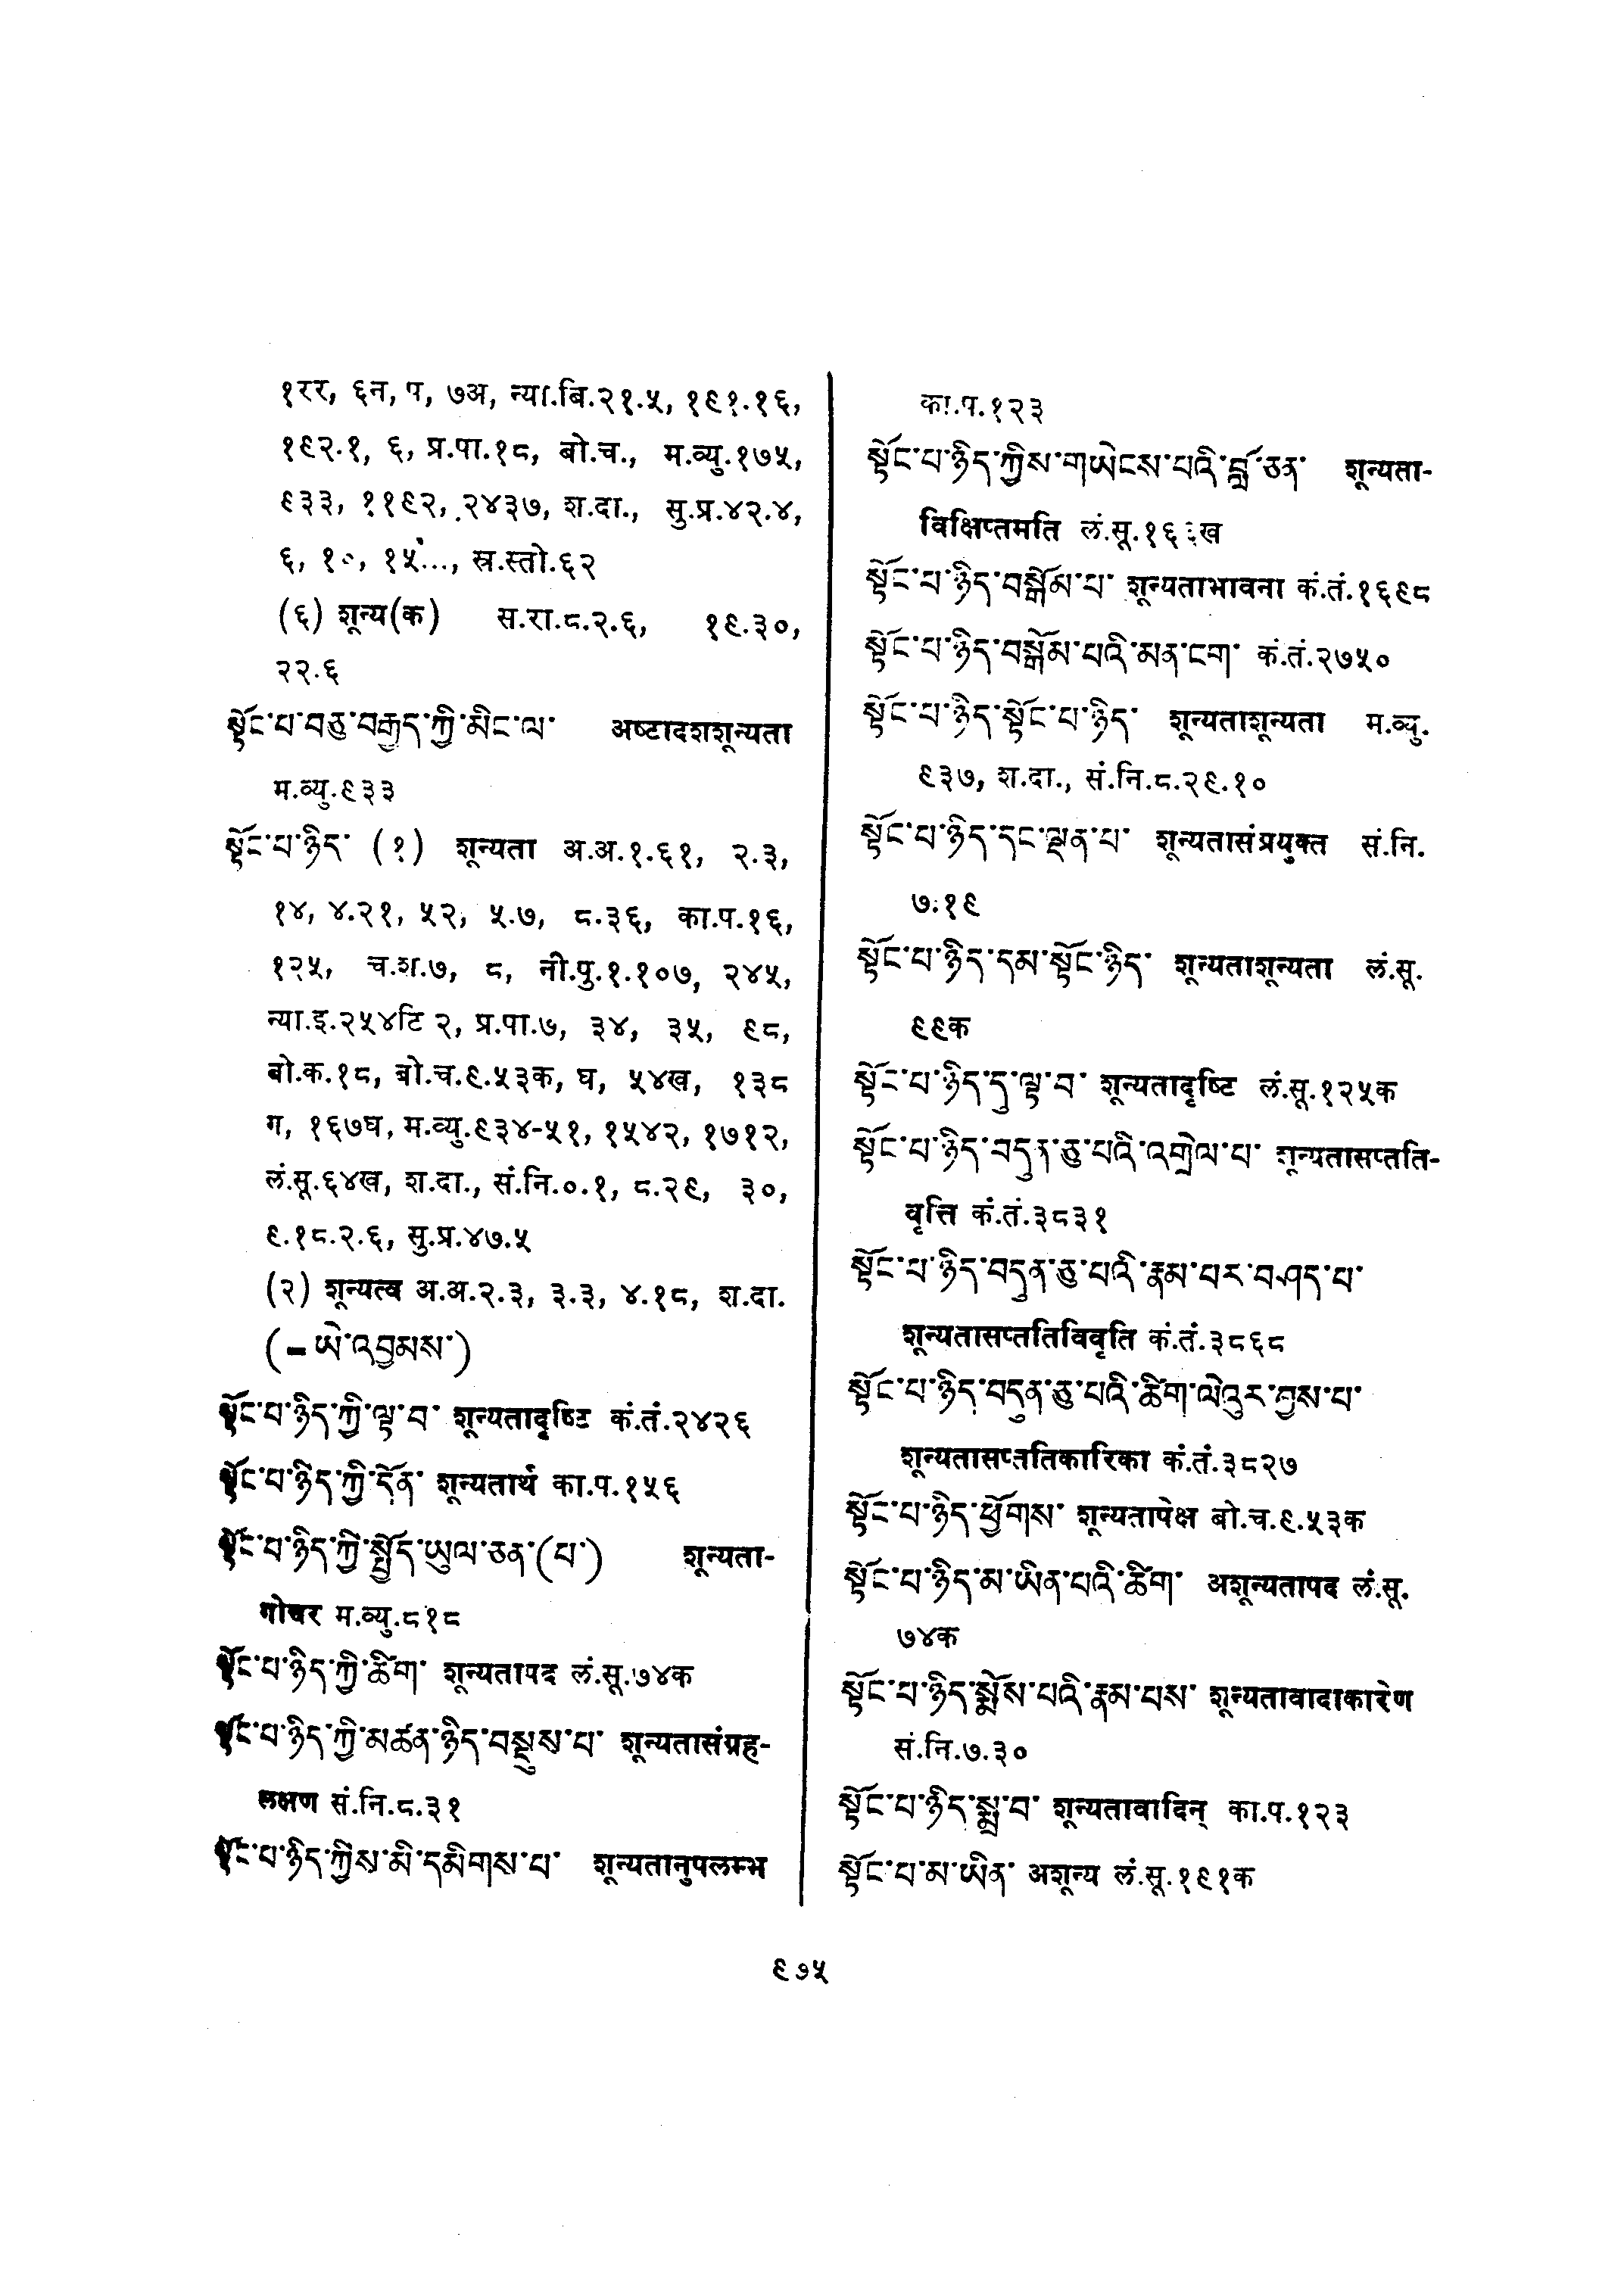 १रर, ६न, प, ७अ, न्या.बि.२१.५, १९१.१६,
१९२.१, ६, प्र.पा.१८, बो.च., म.व्यु.१७५,
९३३, ११९२, २४३७, श.दा., सु.प्र.४२.४,
६, १०, १५..., स्र.स्तो.६२
(६) शून्य(क) स.रा.८.२.६, १९.३०,
२२.६
སྟོང་པ་བཅུ་བརྒྱད་ཀྱི་མིང་ལ་ अष्टादशशून्यता
म.व्यु.९३३
སྟོང་པ་ཉིད་ (१) शून्यता अ.अ.१.६१, २.३,
१४, ४.२१, ५२, ५.७, ८.३६, का.प.१६,
१२५, च.श.७, ८, नी.पु.१.१०७, २४५,
न्या.इ.२५४टि २, प्र.पा.७, ३४, ३५, ९८,
बो.क.१८, बो.च.९.५३क, घ, ५४ख, १३८
ग, १६७घ, म.व्यु.९३४-५१, १५४२, १७१२,
लं.सू.६४ख, श.दा., सं.नि.०.१, ८.२९, ३०,
९.१८.२.६, सु.प्र.४७.५
(२) शून्यत्व अ.अ.२.३, ३.३, ४.१८, श.दा.
(-ཡེ་འབྱམས་)
སྟོང་པ་ཉིད་ཀྱི་ལྟ་བ་ शून्यतादृष्टि कं.तं.२४२६
སྟོང་པ་ཉིད་ཀྱི་དོན་ शून्यतार्थ का.प.१५६
སྟོང་པ་ཉིད་ཀྱི་སྤྱོད་ཡུལ་ཅན་(པ་) शून्यता-
गोचर म.व्यु.८१८
སྟོང་པ་ཉིད་ཀྱི་ཚིག་ शून्यतापद लं.सू.७४क
སྟོང་པ་ཉིད་ཀྱི་མཚན་ཉིད་བསྡུས་པ་ शून्यतासंग्रह-
लक्षण सं.नि.८.३१
སྟོང་པ་ཉིད་ཀྱིས་མི་དམིགས་པ་ शून्यतानुपलम्भ
का.प.१२३
སྟོང་པ་ཉིད་ཀྱིས་གཡེངས་པའི་བློ་ཅན་ शून्यता-
विक्षिप्तमति लं.सू.
སྟོང་པ་ཉིད་བསྒོམ་པ་ शून्यताभावना कं.तं.१६९८
སྟོང་པ་ཉིད་བསྒོམ་པའི་མན་ངག་ कं.तं.२७५०
སྟོང་པ་ཉིད་སྟོང་པ་ཉིད་ शून्यताशून्यता म.व्यु.
९३७, श.दा., सं.नि.८.२९.१०
སྟོང་པ་ཉིད་དང་ལྡན་པ་ शून्यतासंप्रयुक्त सं.नि.
७.१९
སྟོང་པ་ཉིད་དམ་སྟོང་ཉིད་ शून्यताशून्यता लं.सू.
९९क
སྟོང་པ་ཉིད་དུ་ལྟ་བ་ शून्यतादृष्टि लं.सू.१२५क
སྟོང་པ་ཉིད་བདུན་ཅུ་པའི་འགྲེལ་པ་ शून्यतासप्तति-
वृत्ति कं.तं.३८३१
སྟོང་པ་ཉིད་བདུན་ཅུ་པའི་རྣམ་པར་བཤད་པ་
शून्यतासप्ततिविवृति कं.तं.३८६८
སྟོང་པ་ཉིད་བདུན་ཅུ་པའི་ཚིག་ལེའུར་བྱས་པ་
शून्यतासप्ततिकारिका कं.तं.३८२७
སྟོང་པ་ཉིད་ཕྱོགས་ शून्यतापेक्ष बो.च.९.५३क
སྟོང་པ་ཉིད་མ་ཡིན་པའི་ཚིག་ अशून्यतापद लं.सू.
७४क
སྟོང་པ་ཉིད་སྨོས་པའི་རྣམ་པས་ शून्यतावादाकारेण
सं.नि.७.३०
སྟོང་པ་ཉིད་སྨྲ་བ་ शून्यतावादिन् का.प.१२३
སྟོང་པ་མ་ཡིན་ अशून्य लं.सू.१९१क
९७५